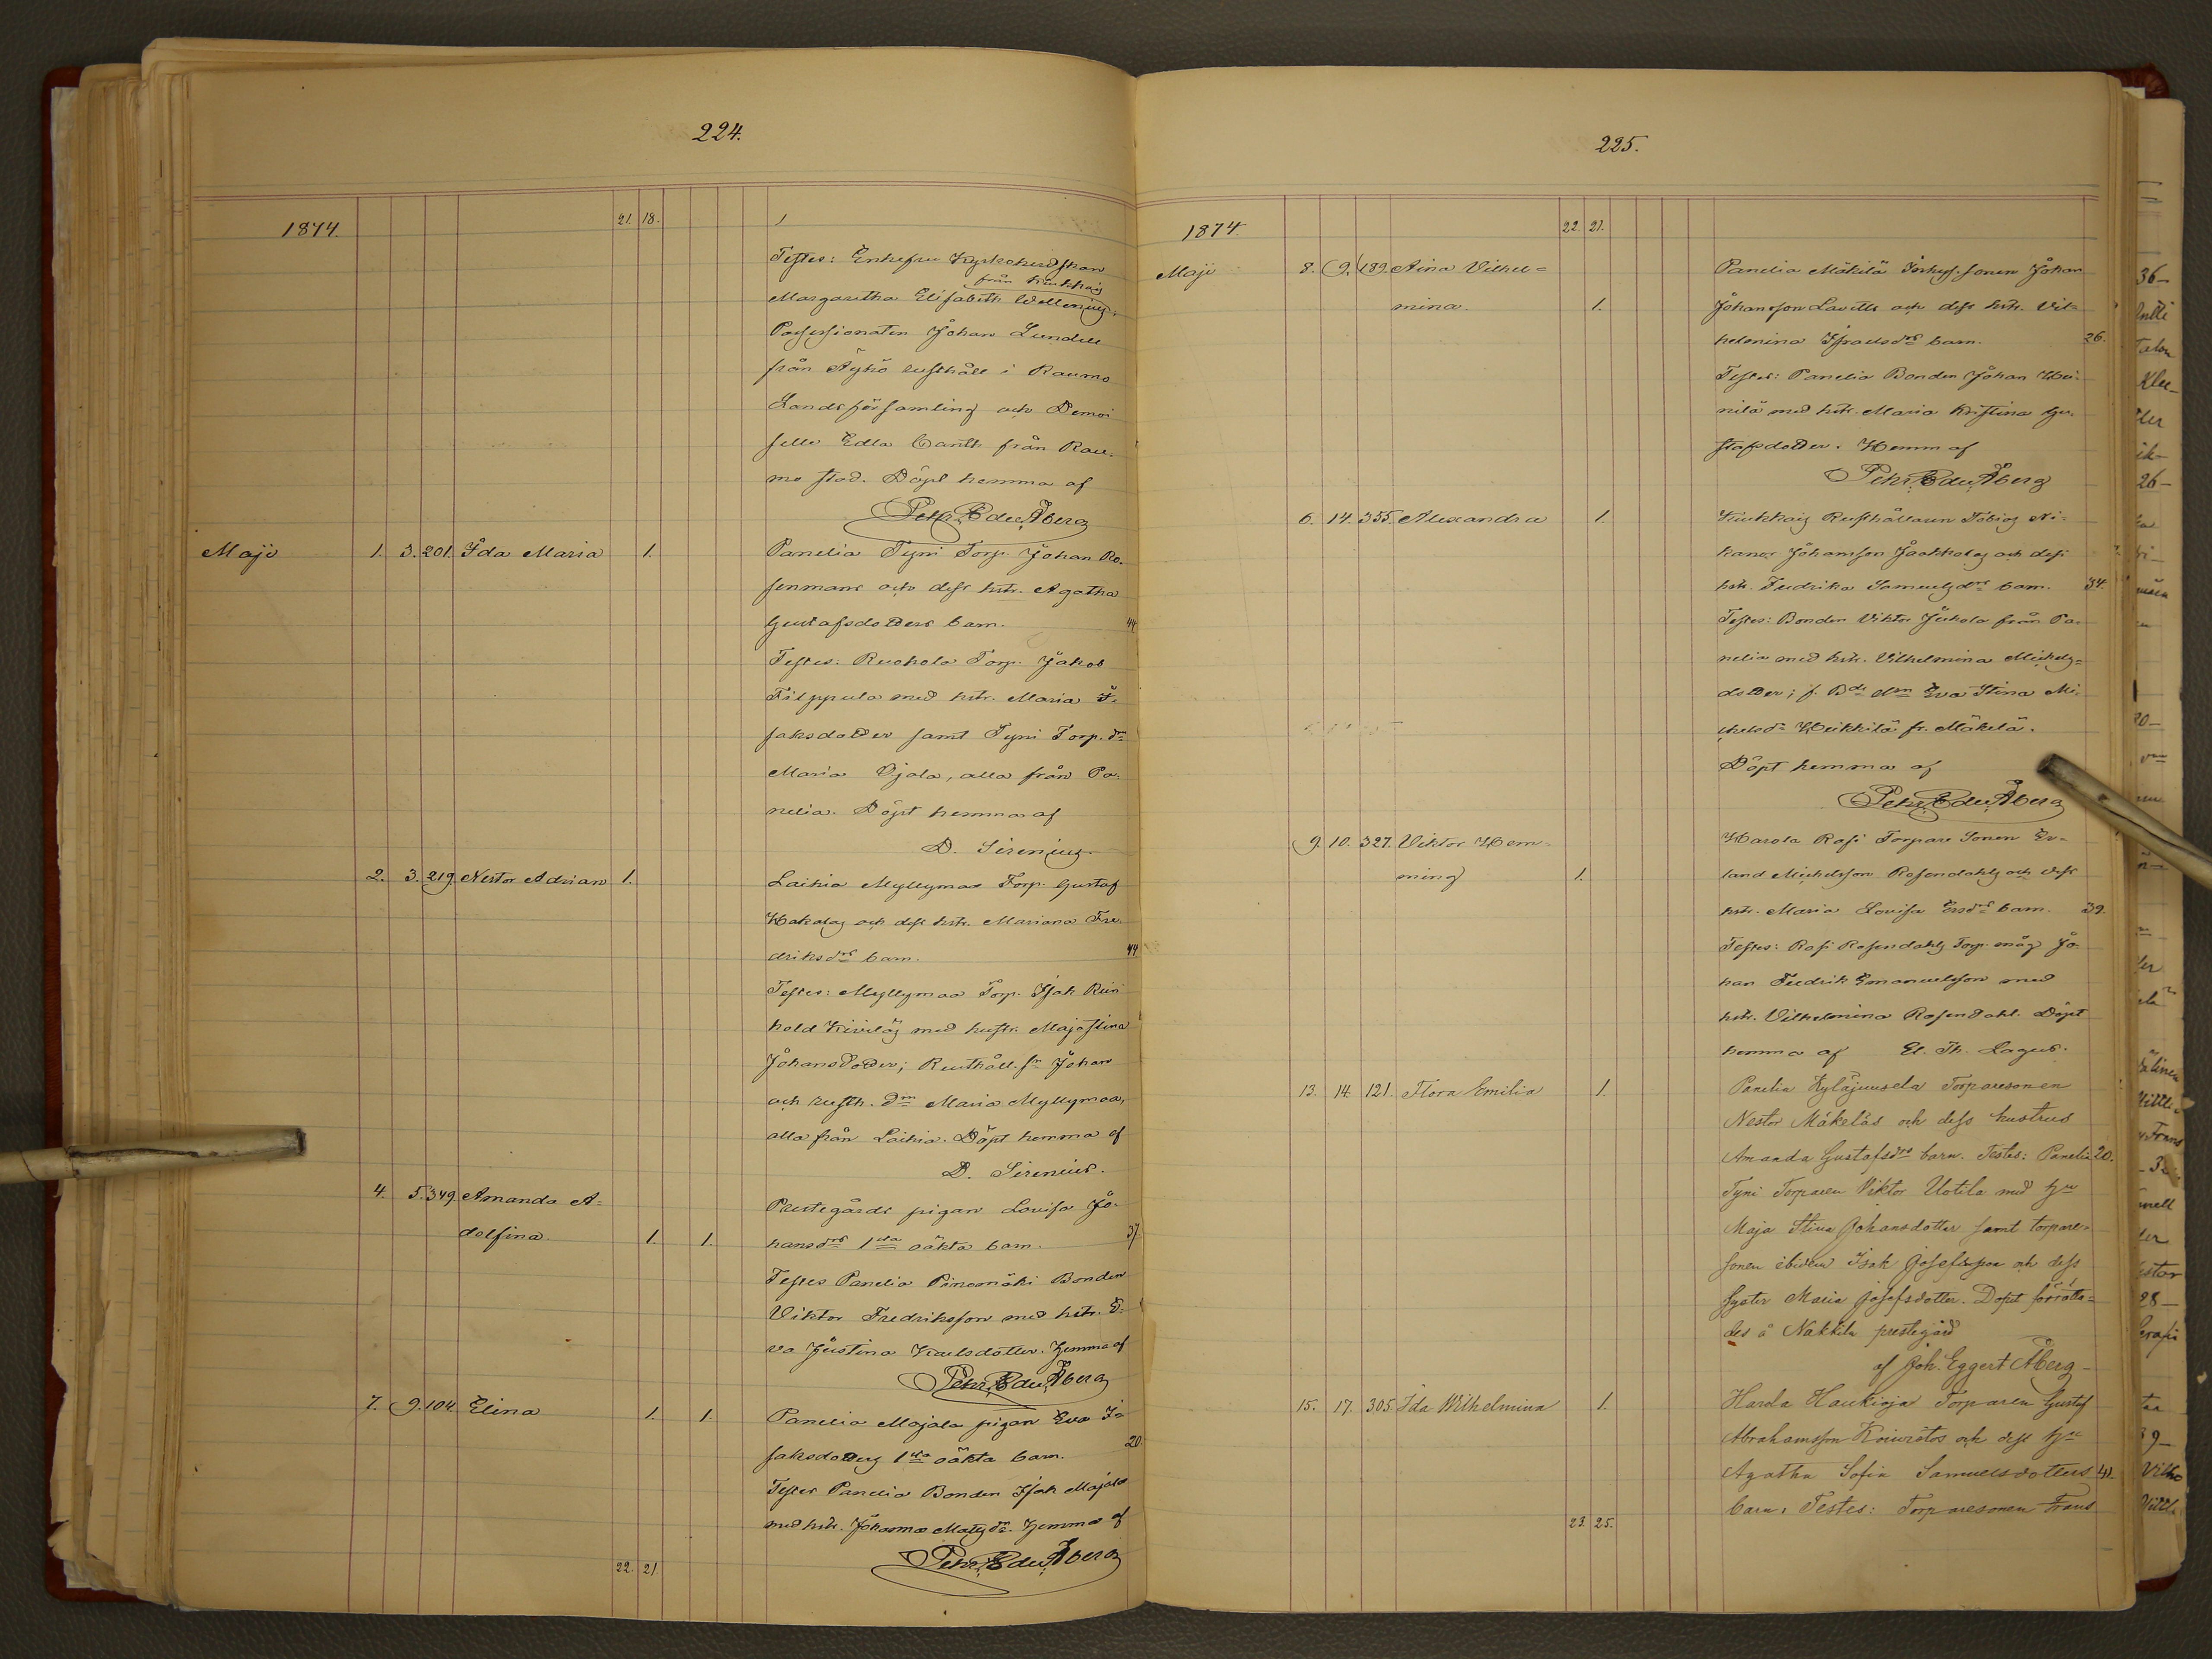 224.
1874.
21. 18.
Testes: Enkefru Kyrkoherdskan
från Kiukkais
Margaretha Elisabeth Wallenius;
Possessionaten Johan Lundell
från Äyhö rusthåll i Raumo
Landsförsamling och Demoi-
selle Edla Cantll från Rau-
mo stad. Döpt hemma af
Petr. Edv. Åberg
Majo 1. 3. 201. Ida Maria 1. Panelia Tyni Torp. Johan Ro-
senmans och dess hstr. Agatha
Gustafsdotters barn. 44
Testes: Ruohola Torp. Jakob
Filppula med hstr. Maria I-
saksdotter samt Tyni Torp. dr
Maria Ojala, alla från Pa-
nelia. Döpt hemma af
D. Sirenius.
2. 3. 219. Nestor Adrian 1. Laihia Myllymaa Torp. Gustaf
Hakalas och dess hstr. Mariana Fre-
driksdrs barn. 44
Testes: Myllymaa Torp. Isak Rein-
hold Kivelä med hustr. Majastina
Johansdotter; Rusthåll. sn Johan
och rusth. drn Maria Myllymaa,
alla från Laihia. Döpt hemma af
D. Sirenius.
4. 5. 349. Amanda A-
Prestegårds pigan Lovisa Jo-
dolfina. 1. 1. hansdrs 1sta oäkta barn. 37
Testes Panelia Pinomäki Bonden
Viktor Fredriksson med hstr. E-
va Justina Karlsdotter. Hemma af
Petr. Edv. Åberg
7. 9. 104. Elina 1. 1. Panelia Majala pigan Eva I-
saksdotters 1sta oäkta barn. 20
Testes Panelia Bonden Isak Majala
med hstr. Johanna Matsdr. Hemma af
Petr. Edv. Åberg
22. 21
225.
1874.
22. 21.
Majo 8. 9. 189. Aina Vilhel- Panelia Mäkilä Inhys. sonen Johan
mina. 1. Johansson Lavills och dess hstr. Vil-
helmina Israelsdrs barn. 26.
Testes: Panelia Bonden Johan Hei-
nilä med hstr. Maria Kristina Gu-
stafsdotter. Hemma af
Petr. Edv. Åberg
6. 14. 355. Alexandra 1. Kiukkais Rusthållaren Tobias Ni-
kanor Johansson Jaakkolas och dess
hstr. Fredrika Samuelsdrs barn. 34.
Testes: Bonden Viktor Jukola från Pa-
nelia med hstr. Vilhelmina Michels-
dotter; f. Bde drn Eva Stina Mi-
chelsdr Heikkilä fr. Mäkelä.
Döpt hemma af
Petr. Edv. Åberg
9. 10. 327. Viktor Hem- Harola Rosi Torpare Sonen Er-
ming 1. land Michelsson Rosendahls och dess
hstr. Maria Lovisa Ersdrs barn. 39.
Testes: Rosi Rosendahls Torp. måg Jo-
han Fredrik Emanuelsson med
hstr. Vilhelmina Rosendahl. Döpt
hemma af El. Th. Lagus.
13. 14. 121. Flora Emilia 1. Panelia Kyläjuusela Torparesonen
Nestor Mäkeläs och dess hustrus
Amanda Gustafsdrs barn. Testes: Panelia 20.
Tyni Torparen Viktor Uotila med hu
Maja Stina Johansdotter samt torpare-
sonen ibidem Isak Josefsson och dess
syster Maria Josefsdotter. Dopet förrätta-
des å Nakkila prestegård
af Joh. Eggert Åberg
15. 17. 305. Ida Wilhelmina 1. Harola Haukioja Torparen Gustaf
Abrahamsson Koivistos och dess hu
Agatha Sofia Samuelsdotters 41.
barn. Testes: Torparesonen Frans
23. 25.